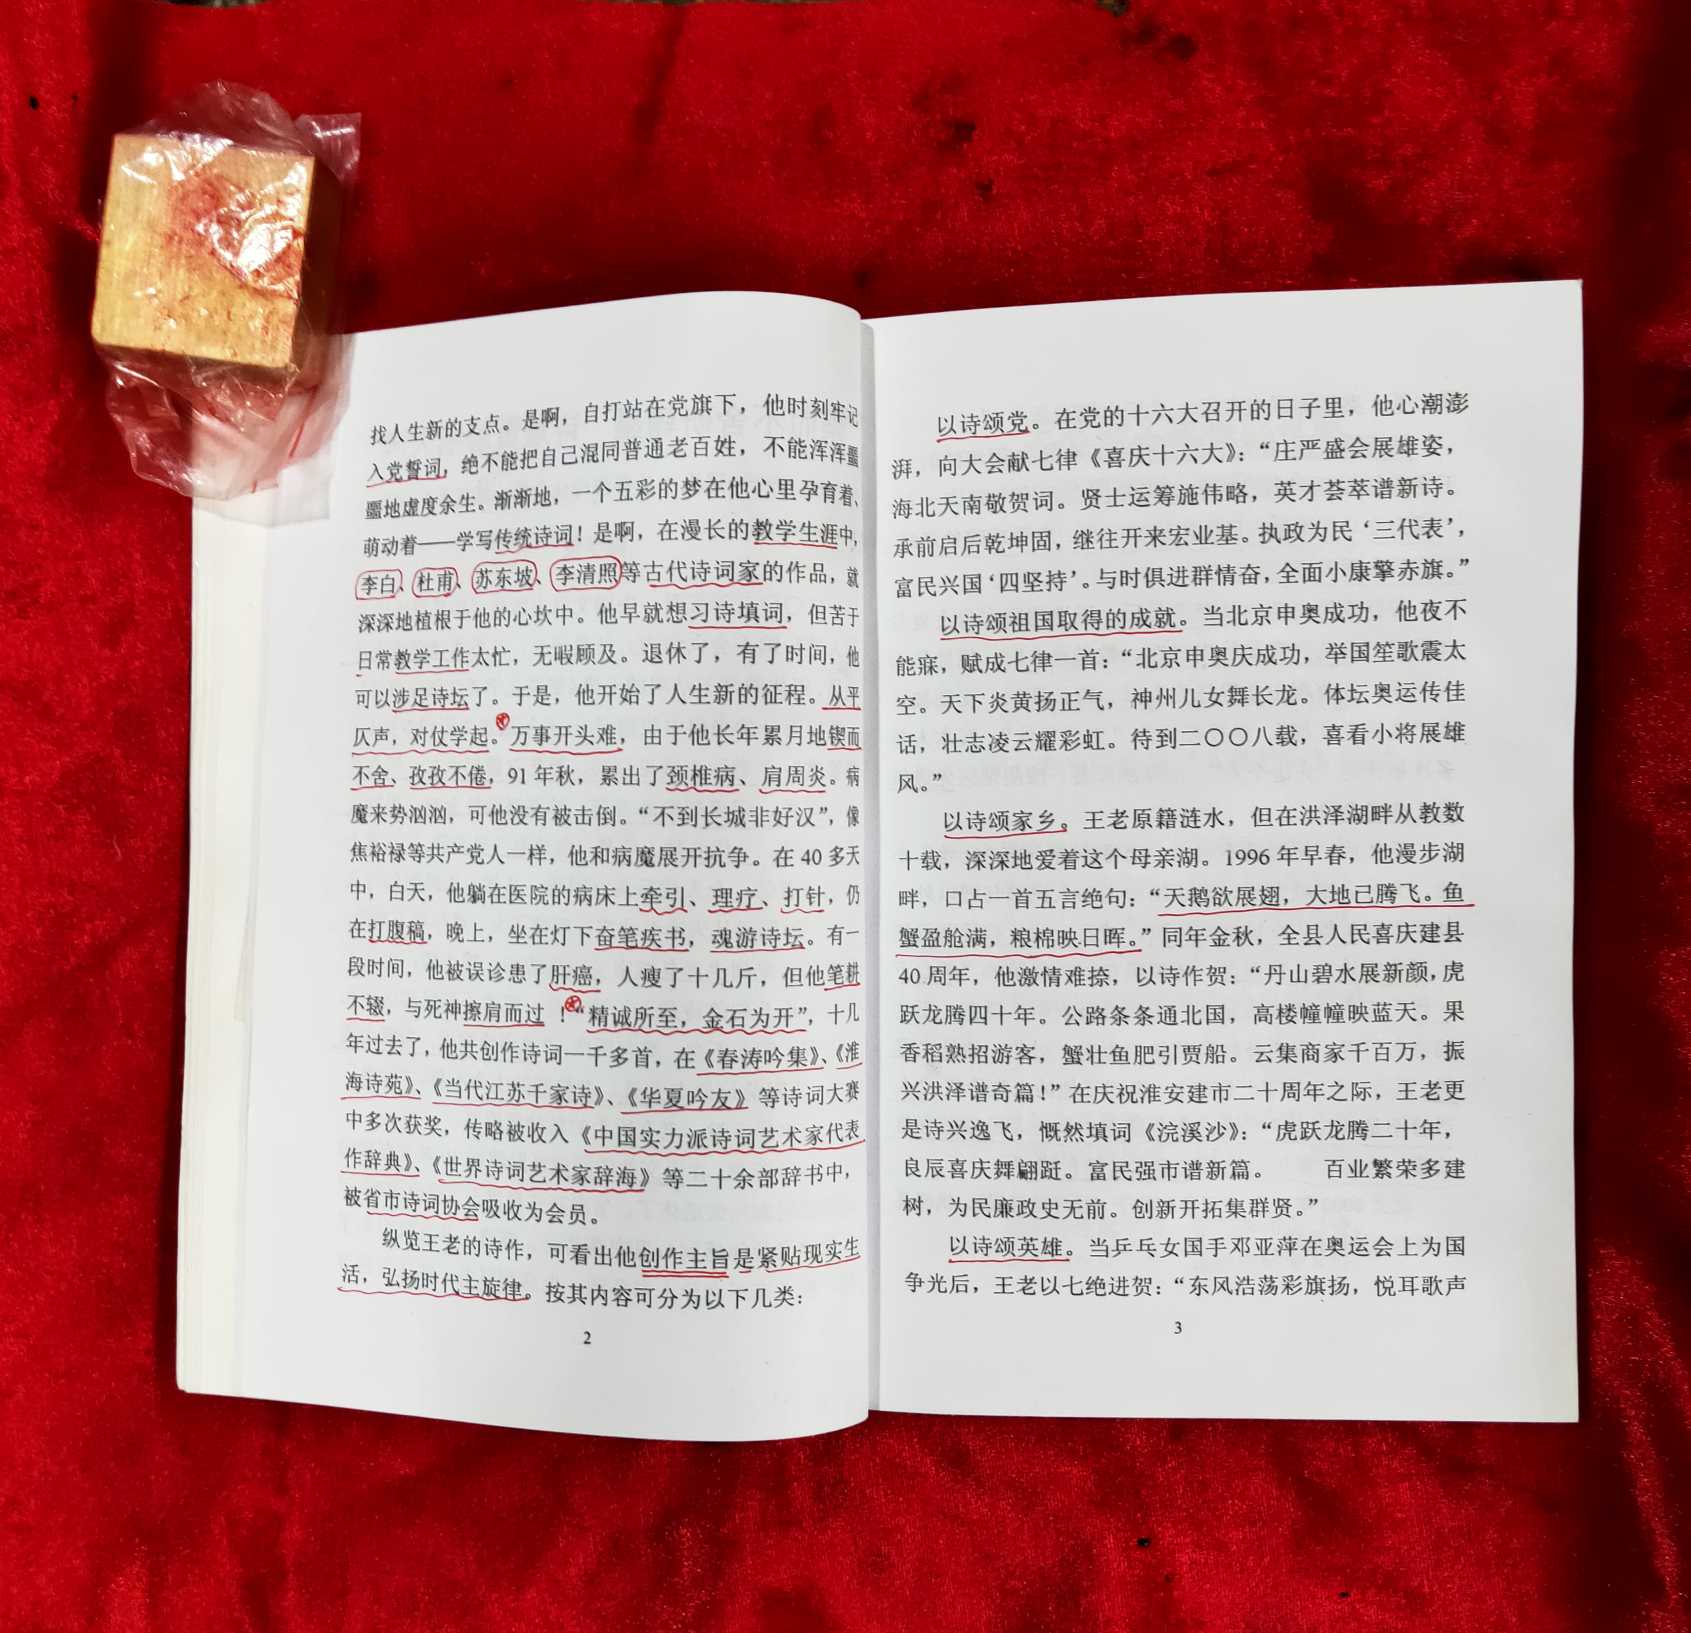 找人生新的支点。是啊，自打站在党旗下，他时刻牢记
入党誓词，绝不能把自己混同普通老百姓，不能浑浑噩
噩地虚度余生。渐渐地，一个五彩的梦在他心里孕育着、
萌动着——学写传统诗词！是啊，在漫长的教学生涯中，
李白、杜甫、苏东坡、李清照等古代诗词家的作品，就
深深地植根于他的心坎中。他早就想习诗填词，但苦于
日常教学工作太忙，无暇顾及。退休了，有了时间，他
可以涉足诗坛了。于是，他开始了人生新的征程。从平
仄声，对仗学起。万事开头难，由于他长年累月地锲而
不舍、孜孜不倦，91年秋，累出了颈椎病、肩周炎。病
魔来势汹汹，可他没有被击倒。“不到长城非好汉”，像
焦裕禄等共产党人一样，他和病魔展开抗争。在40多天
中，白天，他躺在医院的病床上牵引、理疗、打针，仍
在打腹稿，晚上，坐在灯下奋笔疾书，魂游诗坛。有一
段时间，他被误诊患了肝癌，人瘦了十几斤，但他笔耕
不辍，与死神擦肩而过！“精诚所至，金石为开”，十几
年过去了，他共创作诗词一千多首，在《春涛吟集》、《淮
海诗苑》、《当代江苏千家诗》、《华夏吟友》等诗词大赛
中多次获奖，传略被收入《中国实力派诗词艺术家代表
作辞典》、《世界诗词艺术家辞海》等二十余部辞书中，
被省市诗词协会吸收为会员。
纵览王老的诗作，可看出他创作主旨是紧贴现实生
活，弘扬时代主旋律。按其内容可分为以下几类：
2
以诗颂党。在党的十六大召开的日子里，他心潮澎
湃，向大会献七律《喜庆十六大》：“庄严盛会展雄姿，
海北天南敬贺词。贤士运筹施伟略，英才荟萃谱新诗。
承前启后乾坤固，继往开来宏业基。执政为民‘三代表’，
富民兴国‘四坚持’。与时俱进群情奋，全面小康擎赤旗。”
以诗颂祖国取得的成就。当北京申奥成功，他夜不
能寐，赋成七律一首：“北京申奥庆成功，举国笙歌震太
空。天下炎黄扬正气，神州儿女舞长龙。体坛奥运传佳
话，壮志凌云耀彩虹。待到二〇〇八载，喜看小将展雄
风。”
以诗颂家乡。王老原籍涟水，但在洪泽湖畔从教数
十载，深深地爱着这个母亲湖。1996年早春，他漫步湖
畔，口占一首五言绝句：“天鹅欲展翅，大地已腾飞。鱼
蟹盈舱满，粮棉映日晖。”同年金秋，全县人民喜庆建县
40周年，他激情难捺，以诗作贺：“丹山碧水展新颜，虎
跃龙腾四十年。公路条条通北国，高楼幢幢映蓝天。果
香稻熟招游客，蟹壮鱼肥引贾船。云集商家千百万，振
兴洪泽谱奇篇！”在庆祝淮安建市二十周年之际，王老更
是诗兴逸飞，慨然填词《浣溪沙》：“虎跃龙腾二十年，
良辰喜庆舞翩跹。富民强市谱新篇。　　百业繁荣多建
树，为民廉政史无前。创新开拓集群贤。”
以诗颂英雄。当乒乓女国手邓亚萍在奥运会上为国
争光后，王老以七绝进贺：“东风浩荡彩旗扬，悦耳歌声
3